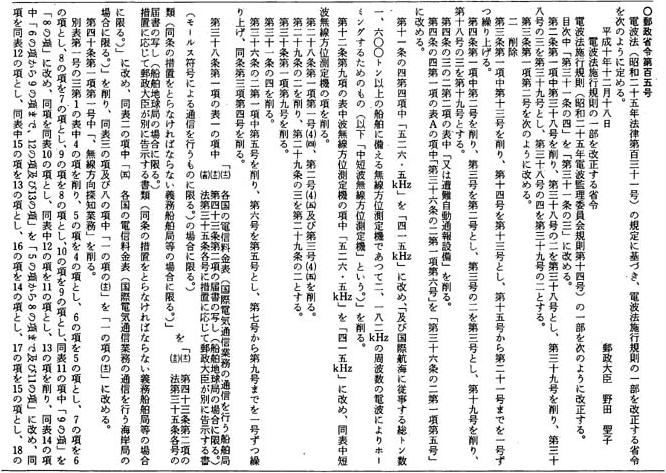 〇郵政省令第百五号
電波法（昭和二十五年法律第百三十一号）の規定に基づき、電波法施行規則の一部を改正する省令
を次のように定める。
平成十年十二月十八日
郵政大臣　野田　聖子
電波法施行規則の一部を改正する省令
電波法施行規則（昭和二十五年電波監理委員会規則第十四号）の一部を次のように改正する。
目次中「第三十一条の四」を「第三十一条の三」に改める。
第二条第一項中第三十八号を削り、第三十八号の二を第三十八号とし、第三十九号を削り、第三十
八号の三を第三十九号とし、第三十八号の四を第三十九号の二とする。
第三条第一項第二号を次のように改める。
二　削除
第四条第一項中第十三号を削り、第十四号を第十三号とし、第十五号から第二十一号までを一号ず
つ繰り上げる。
第四条第一項中第二号を削り、第三号を第二号とし、第三号の二を第三号とし、第十九号を削り、
第十八号の三を第十九号とする。
第四条の二第二項の表中「又は遭難自動通報設備」を削る。
第四条の四第一項の表Aの項中「第三十六条の二第一項第六号」を「第三十六条の二第一項第五号」
に改める。
第十一条の四第四項中「五二六・五kHz」を「四一五kHz」に改め、「及び国際航海に従事する総トン数
一、六〇〇トン以上の船舶に備える無線方位測定機であつて二、一八二kHzの周波数の電波によりホー
ミングするためのもの（以下「中短波無線方位測定機」という。）」を削る。
第十二条第九項の表中波無線方位測定機の項中「五二六・五kHz」を「四一五kHz」に改め、同表中短
波無線方位測定機の項を削る。
第二十八条第一項第一号(4)㈣、第二号(4)㈤及び第三号(4)㈤を削る。
第二十九条の二を削り、第二十九条の三を第二十九条の二とする。
第三十条第一項第九号を削る。
第三十一条の四を削る。
第三十六条の二第一項中第五号を削り、第六号を第五号とし、第七号から第九号までを一号ずつ繰
り上げ、同条第三項第四号を削る。
第三十八条第一項の表一の項中
各国の電信料金表（国際電気通信業務の通信を行う船舶局
（モールス符号による通信を行うものに限る。）の場合に限る。）
第四十三条第二項の届書の写し（船舶地球局の場合に限る。）
法第三十五条各号に措置に応じて郵政大臣が別に告示する書
類（同条の措置をとらなければならない義務船舶局等の場合に限る。）
を
第四十三条第二項の
届書の写し（船舶地球局の場合に限る。）
法第三十五条各号の
措置に応じて郵政大臣が別に告示する書類（同条の措置をとらなければならない義務船舶局等の場合
に限る。）
同表二の項中「㈣　各国の電信料金表（国際電気通信業務の通信を行う海岸局の
場合に限る。）」を削り、同表三の項及び八の項中「一の項の㈩」を「一の項の㈩」に改める。
第四十条第一項第一号中「、無線方向探知業務」を削る。
別表第一号の三第１の表中４の項を削り、５の項を４の項とし、６の項を５の項とし、７の項を６
の項とし、８の項を７の項とし、９の項を８の項とし、10の項を９の項とし、同表11の項中「９の項」を
「８の項」に改め、同項を同表10の項とし、同表中12の項を11の項とし、13の項を削り、同表14の項
中「６の項から９の項まで、12の項及び13の項」を「５の項から８の項まで及び11の項」に改め、同
項を同表12の項とし、同表中15の項を13の項とし、16の項を14の項とし、17の項を15の項とし、18の